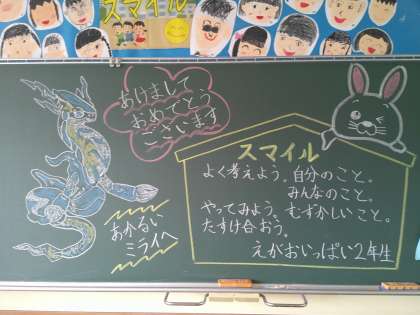 スマイル
あけまして
おめでとう
ございます
あかるい
ミライへ
スマイル
よく考えよう。自分のこと。
みんなのこと。
やってみよう。むずかしいこと。
たすけ合おう。
えがおいっぱい2年生